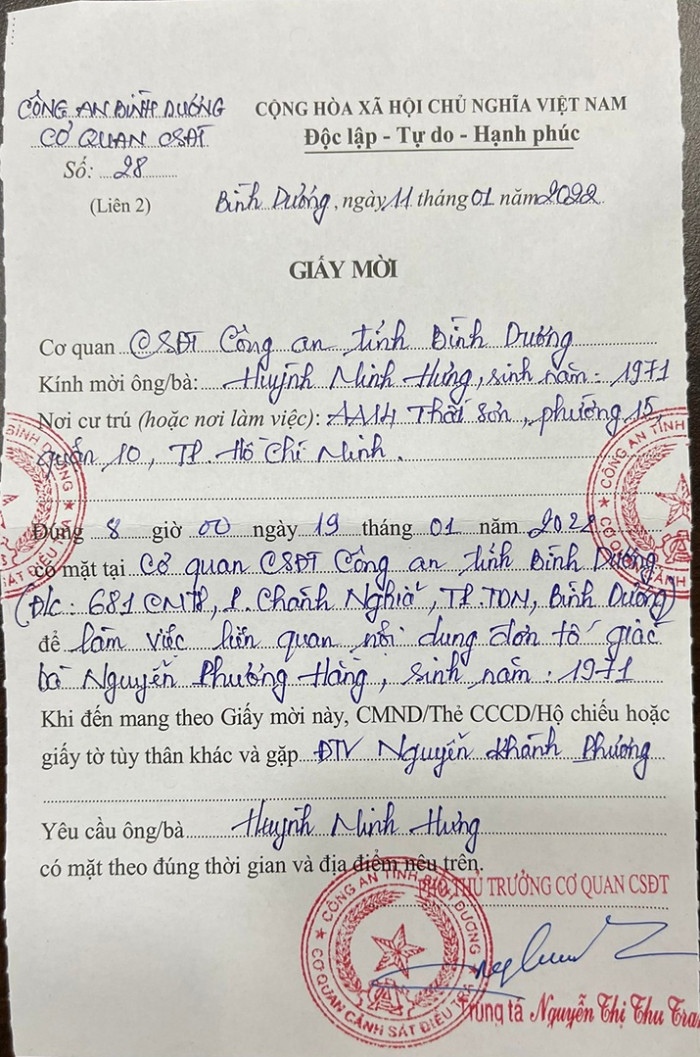 CÔNG AN BÌNH DƯƠNG
CƠ QUAN CSĐT
Số: 28
(Liên 2)
CỘNG HÒA XÃ HỘI CHỦ NGHĨA VIỆT NAM
Độc lập - Tự do - Hạnh phúc
Bình Dương, ngày 11 tháng 01 năm 2022
GIẤY MỜI
Cơ quan CSĐT Công an tỉnh Bình Dương
Kính mời ông/bà: Huỳnh Minh Hưng, sinh năm: 1971
Nơi cư trú (hoặc nơi làm việc): AA14 Thái Sơn, phường 15,
quận 10, TP. Hồ Chí Minh.
Đúng 8 giờ 00 ngày 19 tháng 01 năm 2022
có mặt tại Cơ quan CSĐT Công an tỉnh Bình Dương
(Đ/c: 681 CMT8, P. Chánh Nghĩa, TP. TDM, Bình Dương)
để làm việc liên quan nội dung đơn tố giác
bà Nguyễn Phương Hằng, sinh năm: 1971
Khi đến mang theo Giấy mời này, CMND/Thẻ CCCD/Hộ chiếu hoặc
giấy tờ tùy thân khác và gặp ĐTV Nguyễn Khánh Phương
Yêu cầu ông/bà Huỳnh Minh Hưng
có mặt theo đúng thời gian và địa điểm nêu trên.
PHÓ THỦ TRƯỞNG CƠ QUAN CSĐT
CÔNG AN TỈNH BÌNH DƯƠNG
CƠ QUAN CẢNH SÁT ĐIỀU TRA
Trung tá Nguyễn Thị Thu Tran